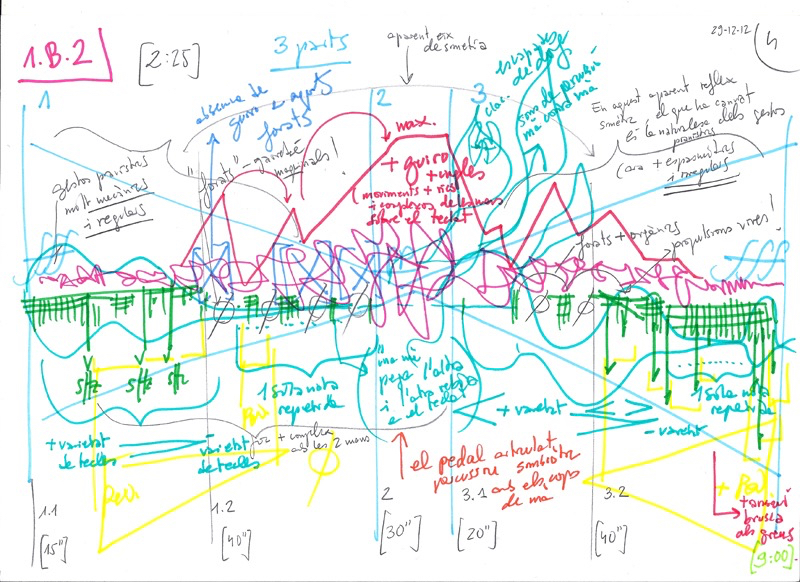 1.B.2
[2:25]
3 parts
aparent eix
de simetria
29-12-12
4
1
2
3
absència de
guiro e aguts
forats
escapades
de dofs
sons de percussió
mà contra mà
clar
En aquest aparent reflex
simètric el que ha canviat
és la naturalesa dels gestos
pianístics
(ara + espasmòdics
i irregulars
gestos pianístics
molt mecànics
i regulars
"forats" - gairebé
maquinals!
max.
+ guiro
+ ungles
(moviments + rics
i complexos de les mans
sobre el teclat
forats + orgànics
propulsions vives!
sffz
sffz
sfz
1 sola nota
repetida
"mà mà
pega l'altra
i l'altra
e el teclat"
+ varietat
1 sola nota
repetida
+ varietat
de tecles
- varietat
de tecles
- varietat
+ complexa
amb les 2 mans
el pedal articulat
percussiu simbiòtic
amb els cops
de mà
Ped.
Ped.
+ Ped.
+ canvi
brusca
als greus
1.1
[15"]
1.2
[40"]
2
[30"]
3.1
[20"]
3.2
[40"]
[9:00]